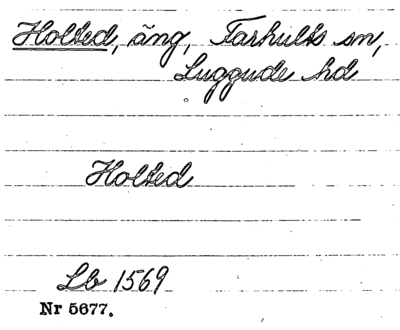 Holted, äng, Farhults sn,
Luggude hd
Holted
Lb 1569
Nr 5677.